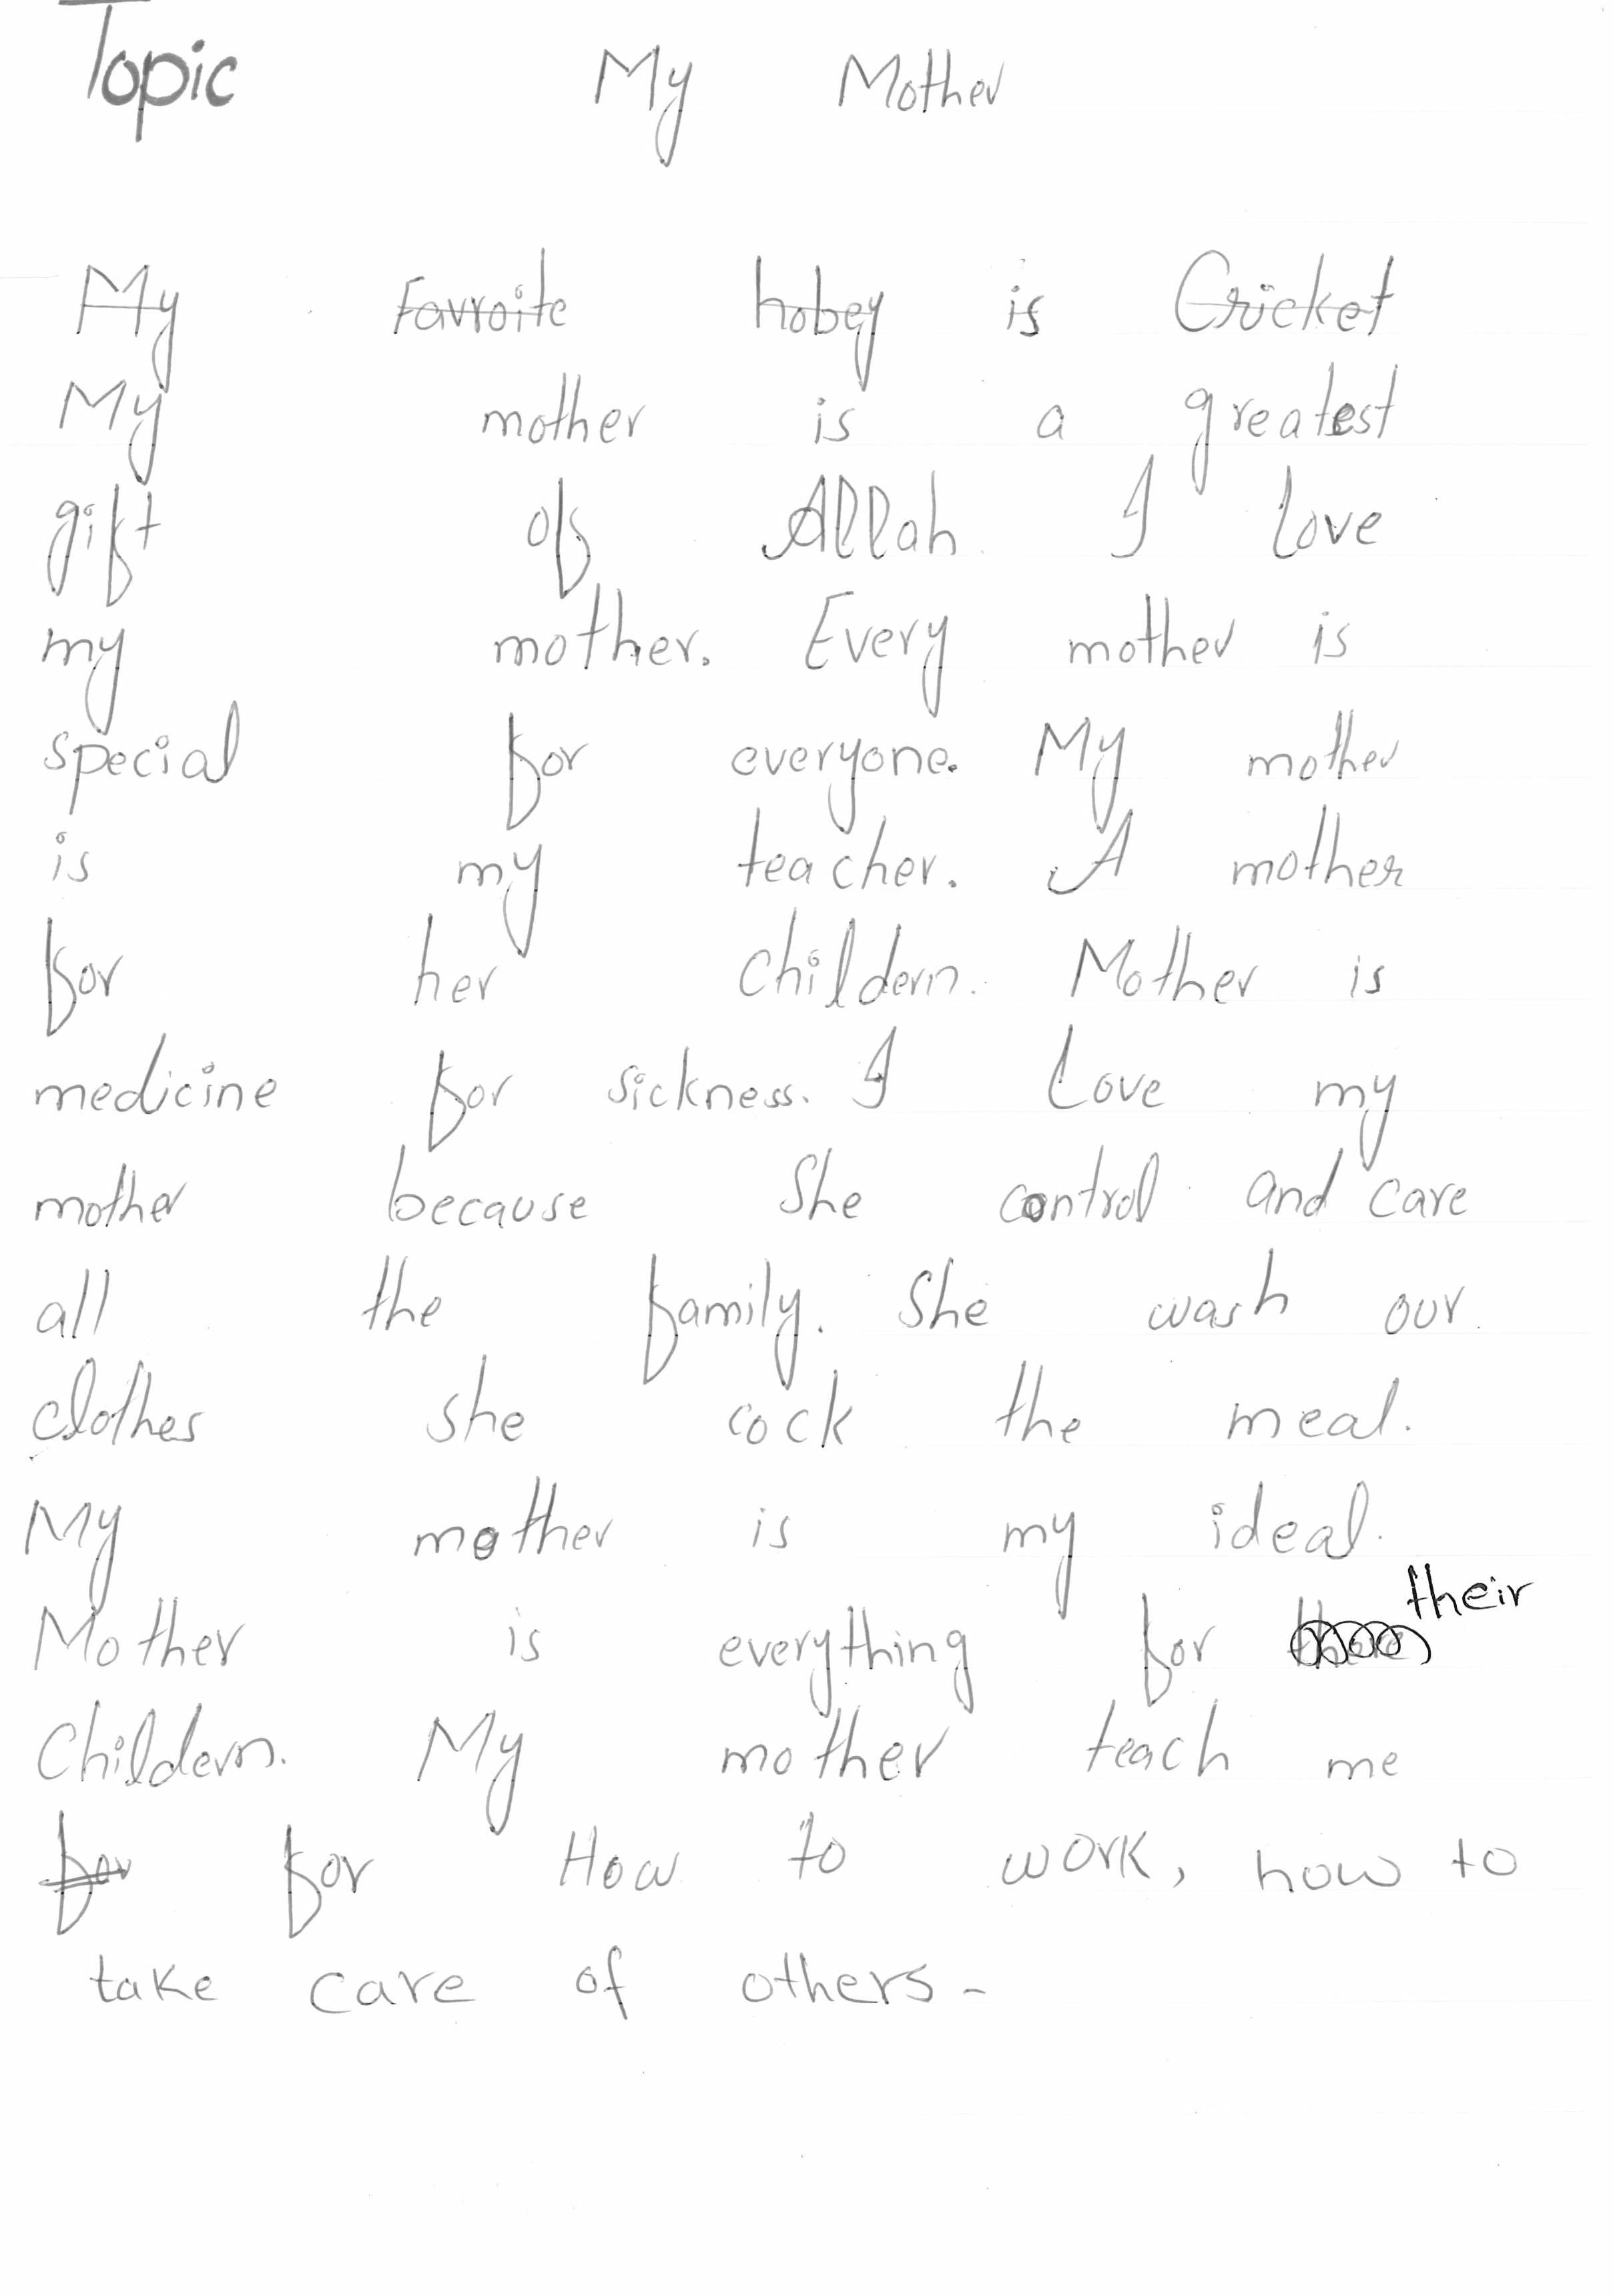 Topic My Mother
My Favroite hobey is Cricket
My mother is a greatest
gift of Allah. I Love
my mother. Every mother is
special for everyone. My mother
is my teacher. A mother
for her childern. Mother is
medicine for sickness. I Love my
mother because She control and care
all the family. She wash our
clothes she cock the meal.
My mother is my ideal.
Mother is everything for their
Childern. My mother teach me
for for How to work, how to
take care of others-